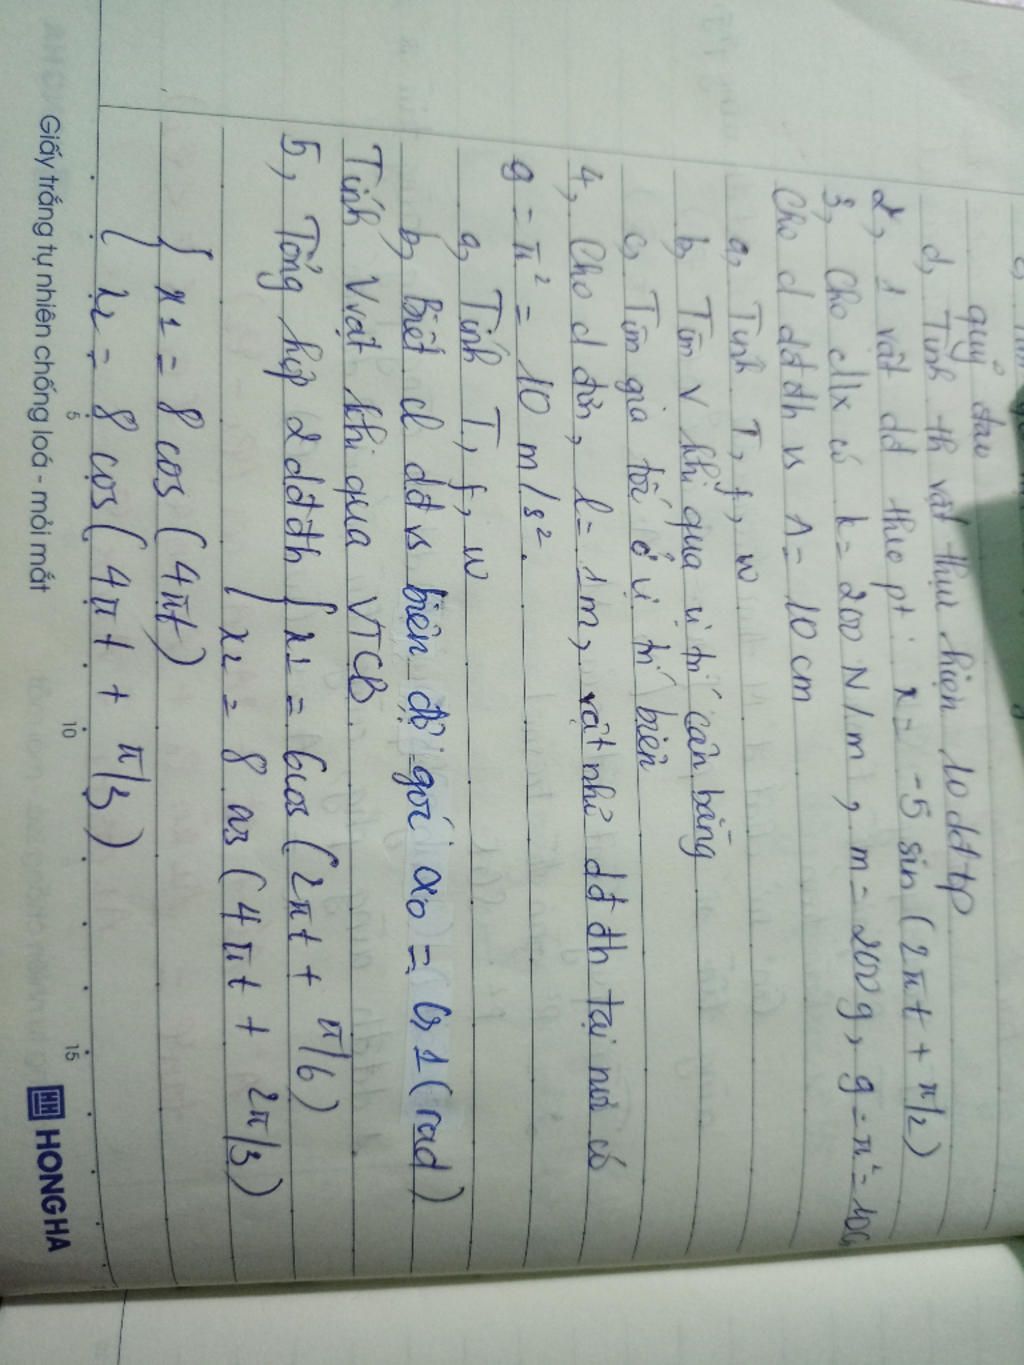 quỹ đạo
d, Tính th vật thực hiện 10 dđtp
2, 1 vật dđ theo pt: x = -5 sin (2πt + π/2)
3, Cho cllx có k = 200 N/m, m = 200g, g = π² = 10
Cho cl dđđh vs A = 10 cm
a, Tính T, f, w
b, Tìm v khi qua vị trí cân bằng
c, Tìm gia tốc ở vị trí biên
4, Cho cl đơn, l = 1m, vật nhỏ dđ đh tại nơi có
g = π² = 10 m/s².
a, Tính T, f, w
b, Biết cl dđ vs biên độ góc α₀ = 0,1 (rad)
Tính Vvật khi qua VTCB.
5, Tổng hợp 2 dđđh { x1 = 6cos (2πt + π/6)
{ x2 = 8 cos (4πt + 2π/3)
{ x1 = 8 cos (4πt)
{ x2 = 8 cos (4πt + π/3)
5 10 15
Giấy trắng tự nhiên chống loá - mỏi mắt
HH HONG HA